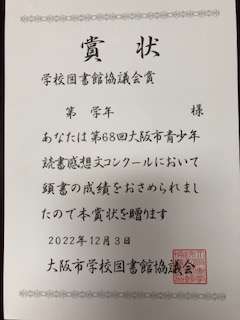 賞状
学校図書館協議会賞
第 学年 様
あなたは第68回大阪市青少年
読書感想文コンクールにおいて
頭書の成績をおさめられまし
たので本賞状を贈ります
2022年12月3日
大阪市学校図書館協議会